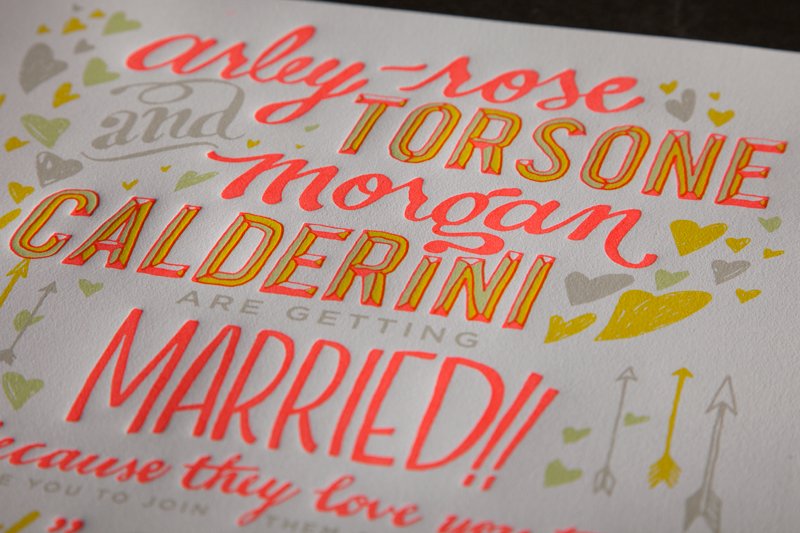 arley-rose
and TORSONE
morgan
CALDERINI
ARE GETTING
MARRIED!!
because they love you
YOU TO JOIN THEM